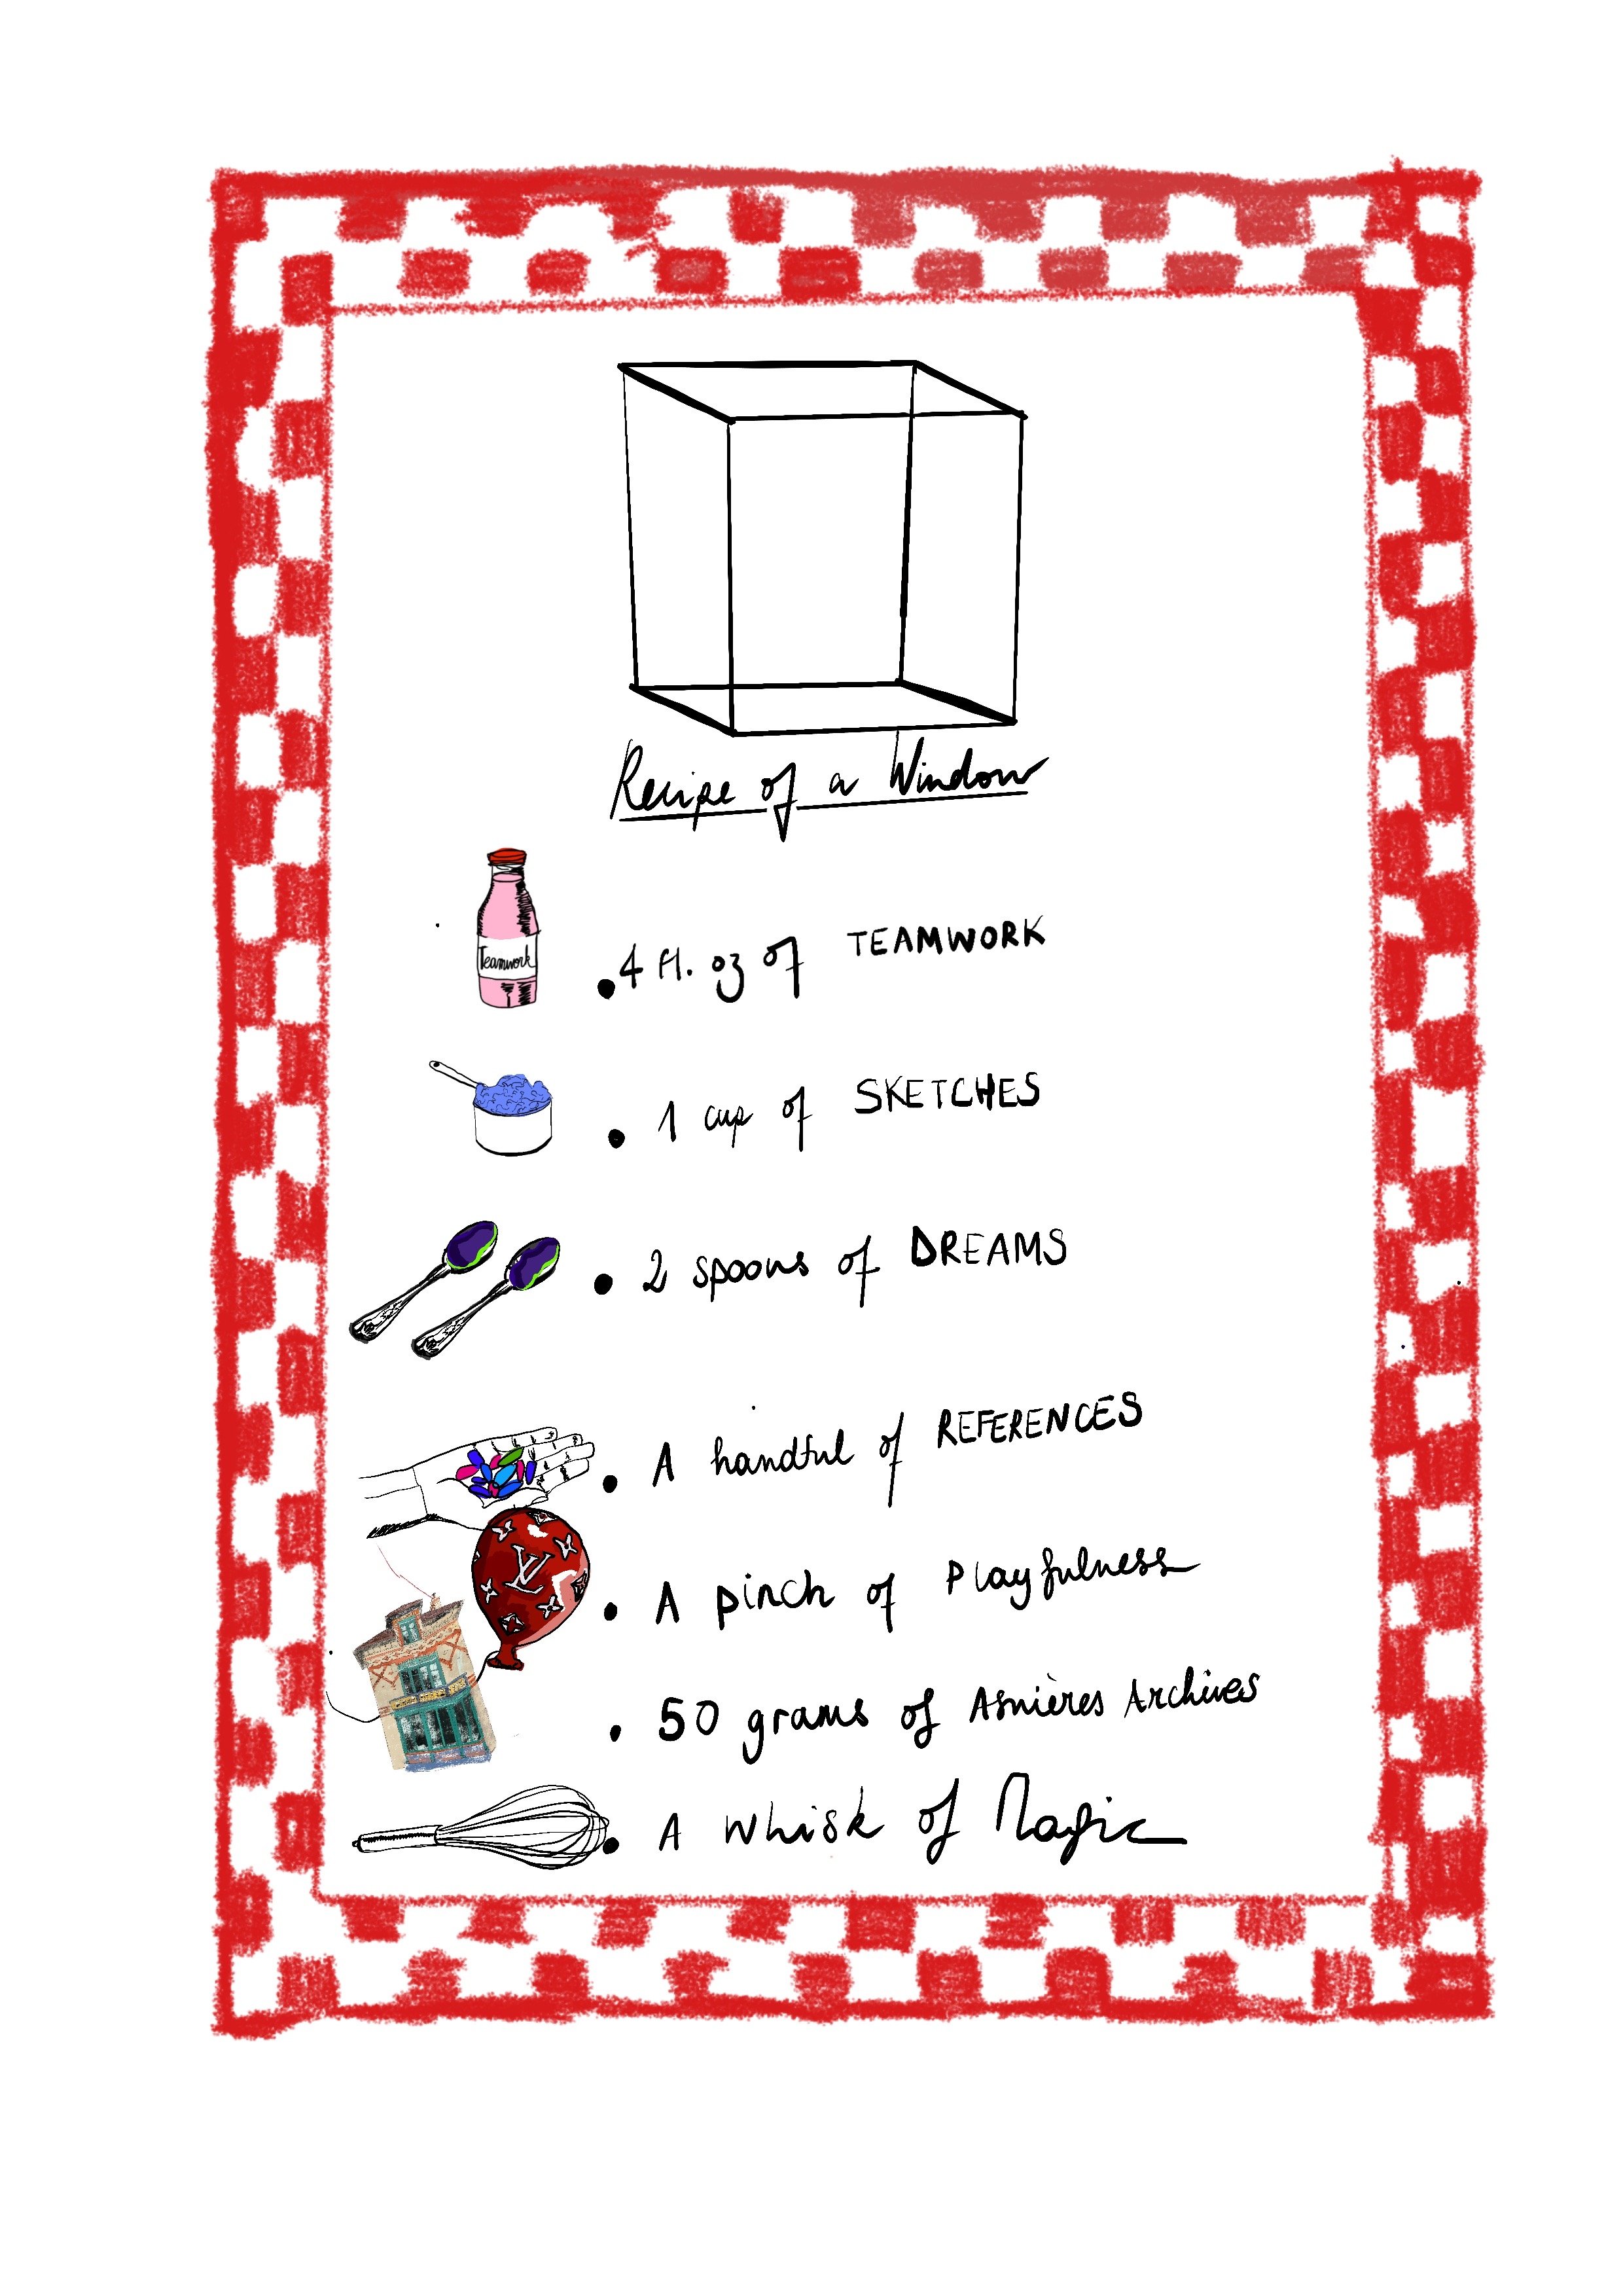 Recipe of a Window
Teamwork
4 fl. oz of TEAMWORK
1 cup of SKETCHES
2 spoons of DREAMS
A handful of REFERENCES
LV
A pinch of Playfulness
50 grams of Asnières Archives
A whisk of Magic